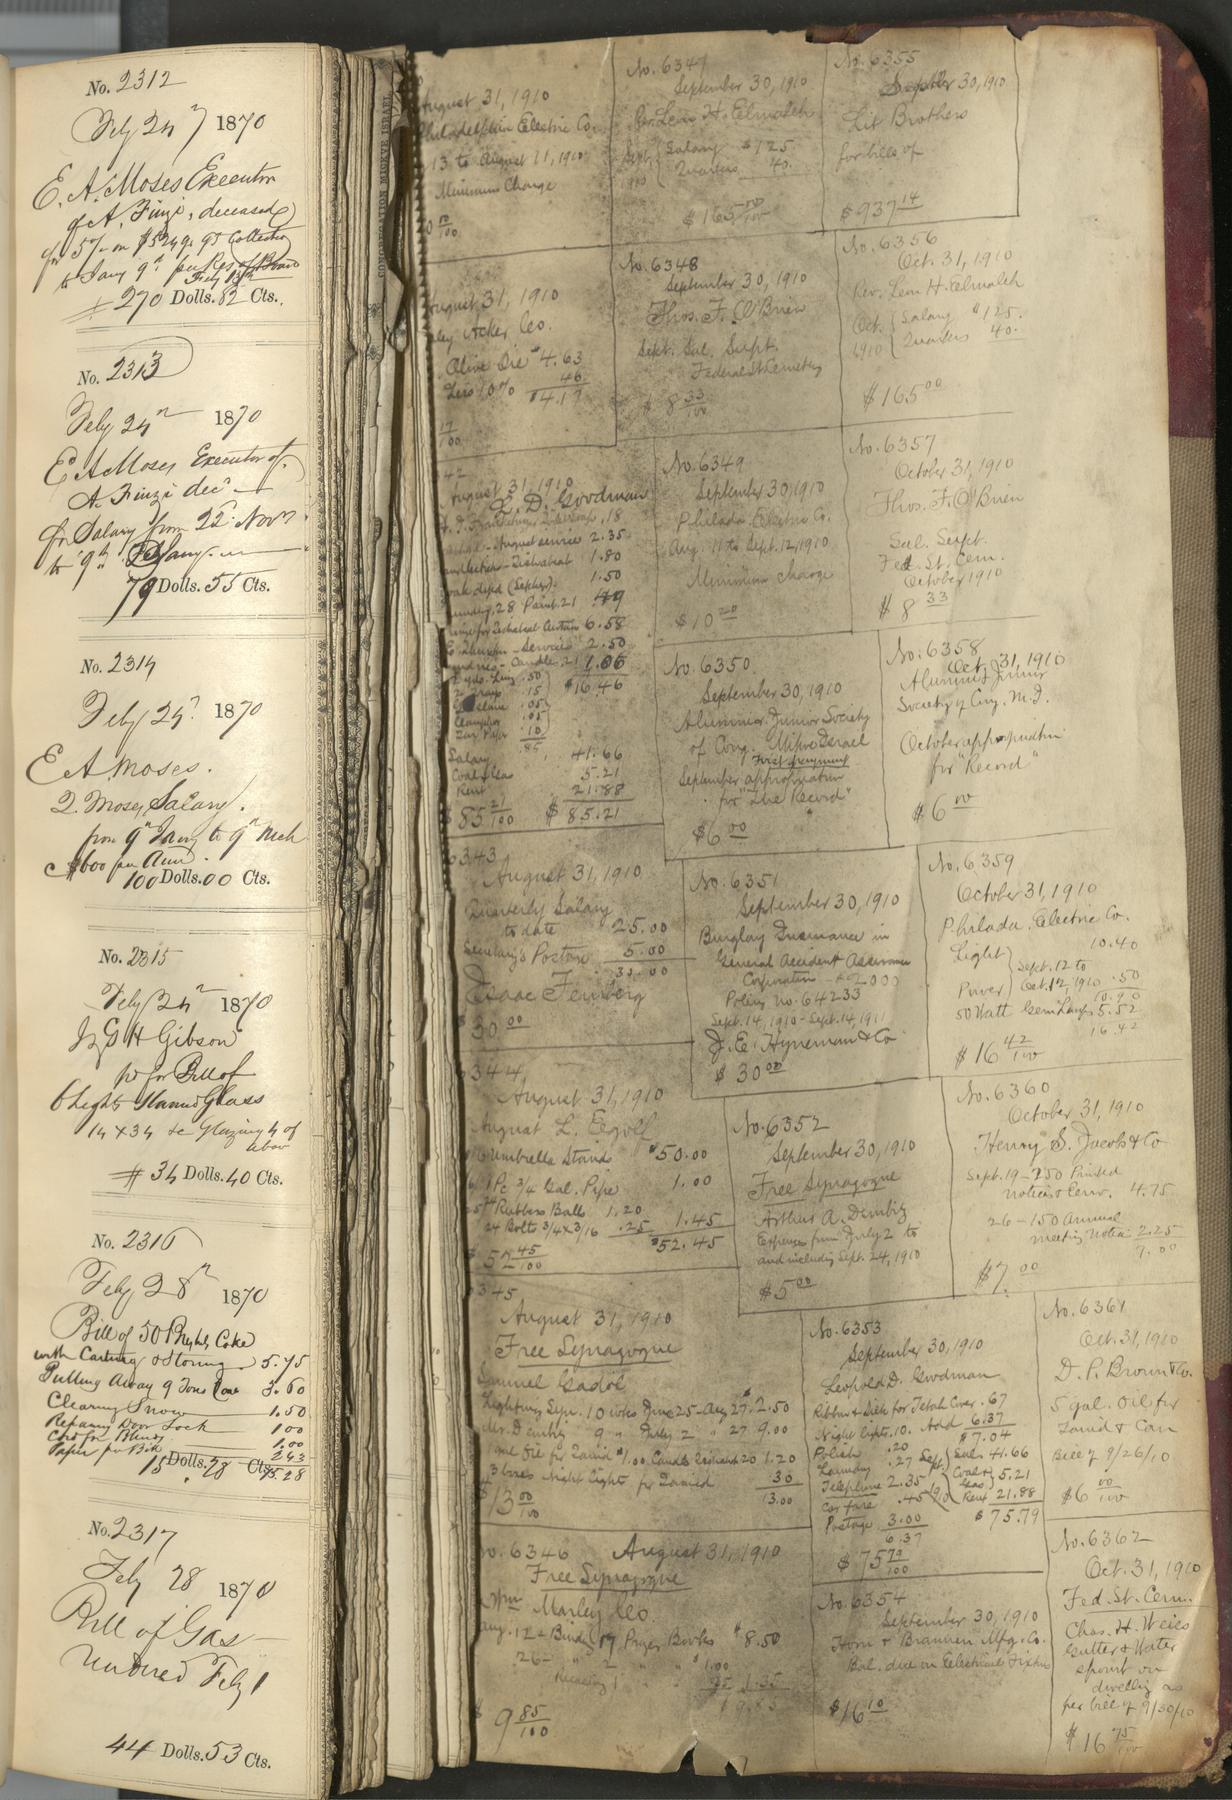 No. 2312
Feby 24 1870
E. A. Moses Executor
of A. Finzi, deceased
for 5% on $5249.95 Collection
to Jany 9th per Res of Board
Feby 13th
$270 Dolls. 82 Cts.
No. 2313
Feby 24th 1870
E A Moses Executor of
A. Finzi dec
for Salary from 22 Novr
to 9th Jany.
79 Dolls. 55 Cts.
No. 2314
Feby 24 1870
E A Moses.
2 Mos Salary.
from 9th Jany to 9th Mch
$600 per Ann.
100 Dolls. 00 Cts.
No. 2315
Feby 24th 1870
H Gibson
for Bill of
6 Lights Stained Glass
14 x 34 &c Glazing 4 of
above
$ 34 Dolls. 40 Cts.
No. 2316
Feby 28th 1870
Bill of 50 Bushels Coke
with Cartage & Storing 5.75
Putting Away 9 Tons Coal 3.60
Clearing Snow 1.50
Repairing Door Lock 1 00
Cord for Blinds 1.00
Paper per Bill 2 43
15 Dolls. 28 Cts. 15.28
No. 2317
Feby 28 1870
Bill of Gas
Feby 1
44 Dolls. 53 Cts.
CONGREGATION MIKVE ISRAEL
August 31, 1910
Philadelphia Electric Co.
13 to August 11, 1910
Minimum Charge
August 31, 1910
Acker Co.
Olive Oil $4.63
Less 10% .46
$4.17
17/100
42
August 31, 1910
L. D. Goodman
.18
August service 2.35
1.80
1.50
6.58
2.50
Candles
$16.46
.50
.15
.05
.05
.10
.85
Salary 41.66
Coal & Gas 5.21
Rent 21.88
$85 21/100 $85.21
6343
August 31, 1910
Quarterly Salary
to date 25.00
Secretary's Postage 5.00
30.00
Isaac Feinberg
$30 00
6344
August 31, 1910
August L.
Umbrella Stand $50.00
1 Pc 3/4 Gal. Pipe 1.00
Rubber Balls 1.20
24 Bolts 3/4 x 3/16 .25 1.45
$52.45
$52 45/100
6345
August 31, 1910
Free Synagogue
Samuel Gadol
Lighting Syn. 10 wks June 25 - Aug 27 2.50
Mr. Dembitz 9 " July 2 " 27 9.00
Oil for Tamid $1.00 Candle .20 1.20
3 boxes Night lights for Tamid .30
13.00
$13 00/100
No. 6346 August 31, 1910
Free Synagogue
Wm Marley Co.
Aug. 12 - Bindg 17 Prayer Books $8.50
26 - " 2 " " $1.00
1 .35 1.35
9.85
$9 85/100
No. 6347
September 30, 1910
Rev. Leon H. Elmaleh
Sept. Salary $125
1910 Quarters 40.
$165 00/100
No. 6348
September 30, 1910
Thos. F. O'Brien
Sept. Sal. Supt.
Federal St. Cemetery
$8 33/100
No. 6349
September 30, 1910
Philada. Electric Co.
Aug. 11 to Sept. 12, 1910
Minimum charge
$10 20
No. 6350
September 30, 1910
Alumni Junior Society
of Cong. Mikve Israel
First payment
September appropriation
for "The Record"
$6 00
No. 6351
September 30, 1910
Burglary Insurance in
General Accident Assurance
Corporation - $2000
Policy No. 64233
Sept. 14, 1910 - Sept. 14, 1911
J. E. Hyneman & Co
$30 00
No. 6352
September 30, 1910
Free Synagogue
Arthur A. Dembitz
Expenses from July 2 to
and including Sept. 24, 1910
$5 00
No. 6353
September 30, 1910
Leopold D. Goodman
Ribbon & Silk for Tebah Cover .67
Night lights .10. Add 6.37
Polish .20 $7.04
Laundry .27 Sept. Sal. 41.66
Telephone 2.35 1910 Coal & Gas 5.21
Car fare .45 Rent 21.88
Postage 3.00 $75.79
6.37
$75 79/100
No. 6354
September 30, 1910
Horn & Brannen Mfg. Co.
Bal. due on Electrical Fixtures
$16 10
No. 6355
September 30, 1910
Lit Brothers
for bills of
$937 14
No. 6356
Oct. 31, 1910
Rev. Leon H. Elmaleh
Oct. Salary $125.
1910 Quarters 40.
$165 00
No. 6357
October 31, 1910
Thos. F. O'Brien
Sal. Supt.
Fed. St. Cem.
October 1910
$8 33
No. 6358
Oct. 31, 1910
Alumni Junior
Society of Cong. M. I.
October appropriation
for "Record"
$6 00
No. 6359
October 31, 1910
Philada. Electric Co.
Light 10.40
Sept. 12 to
Power Oct. 12, 1910 .50
10.90
50 Watt Gem Lamps 5.52
16.42
$16 42/100
No. 6360
October 31, 1910
Henry S. Jacobs & Co
Sept. 19 - 250 Printed
notices & Env. 4.75
26 - 150 Annual
meeting Notices 2.25
7.00
$7. 00
No. 6361
Oct. 31, 1910
D. P. Brown & Co.
5 gal. Oil for
Tamid & Can
Bill of 9/26/10
$6 00/100
No. 6362
Oct. 31, 1910
Fed. St. Cem.
Chas. H. Weiss
Gutter & Water
spout on
dwelling as
per bill of 9/30/10
$16 75/100